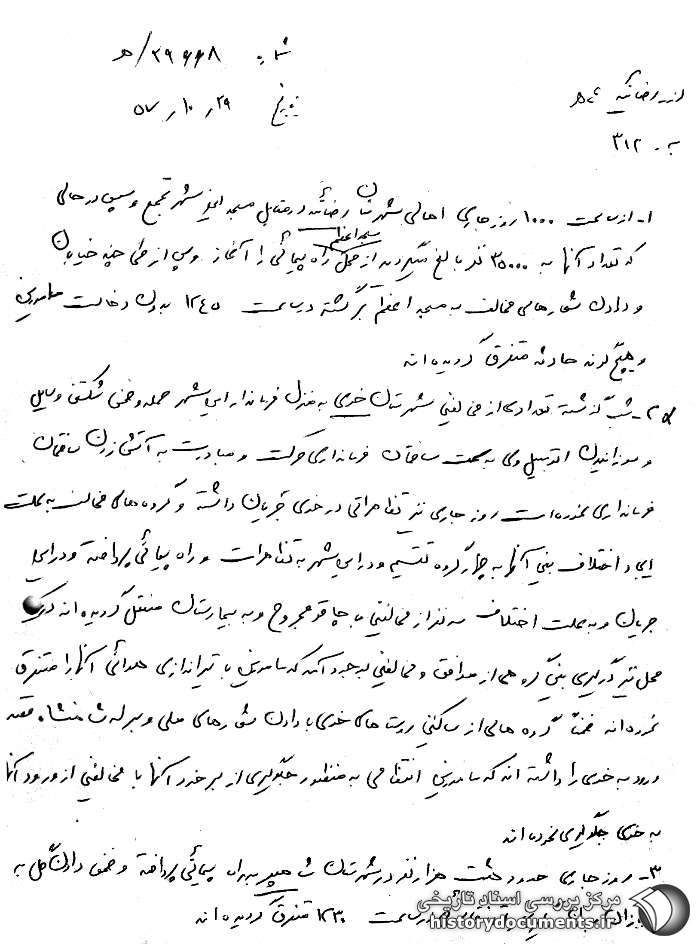 شماره ۲۹۶۶۸/ ه
از رضائیه
تاریخ ۲۹ر۱۰ر۵۷
به ۳۱۲
۱- از ساعت ۱۰۰۰ روز جاری اهالی شهرستان رضائیه در مقابل مسجد اعظم شهر تجمع و سپس در حالی
که تعداد آنها به ۳۵۰۰۰ نفر بالغ میگردید از محل مسجد اعظم راه پیمائی را آغاز و پس از طی چند خیابان
و دادن شعارهای مخالف به مسجد اعظم برگشته در ساعت ۱۲۴۵ بدون دخالت مامورین
و هیچگونه حادثه متفرق گردیده اند
۲- شب گذشته تعدادی از مخالفین شهرستان خوی به منزل فرماندار این شهر حمله و ضمن شکستن وسایل
و سوزانیدن اتومبیل وی به سمت ساختمان فرمانداری حرکت و مبادرت به آتش زدن ساختمان
فرمانداری نموده است روز جاری نیز تظاهراتی در خوی جریان داشته و گروه های مخالف به علت
ایجاد اختلاف بین آنها به چهار گروه تقسیم و در این شهر به تظاهرات و راه پیمائی پرداخته و در این
جریان و به علت اختلاف سه نفر از مخالفین با چاقو مجروح و به بیمارستان منتقل گردیده اند در یک
محل نیز درگیری بین گروهی از موافق و مخالفین بوجود آمد که مامورین با تیراندازی هوائی آنها را متفرق
نموده اند ضمناً گروه هائی از ساکنین روستاهای خوی با دادن شعارهای ملی و به له شاهنشاه قصد
ورود به خوی را داشته اند که مامورین انتظامی به منظور جلوگیری از برخورد آنها با مخالفین از ورود آنها
به خوی جلوگیری نموده اند
۳- روز جاری حدود هشت هزار نفر در شهرستان شاهپور به راه پیمائی پرداخته و ضمن دادن گل به
در ساعت ۱۲۳۰ متفرق گردیده اند
مرکز بررسی اسناد تاریخی
historydocuments.ir